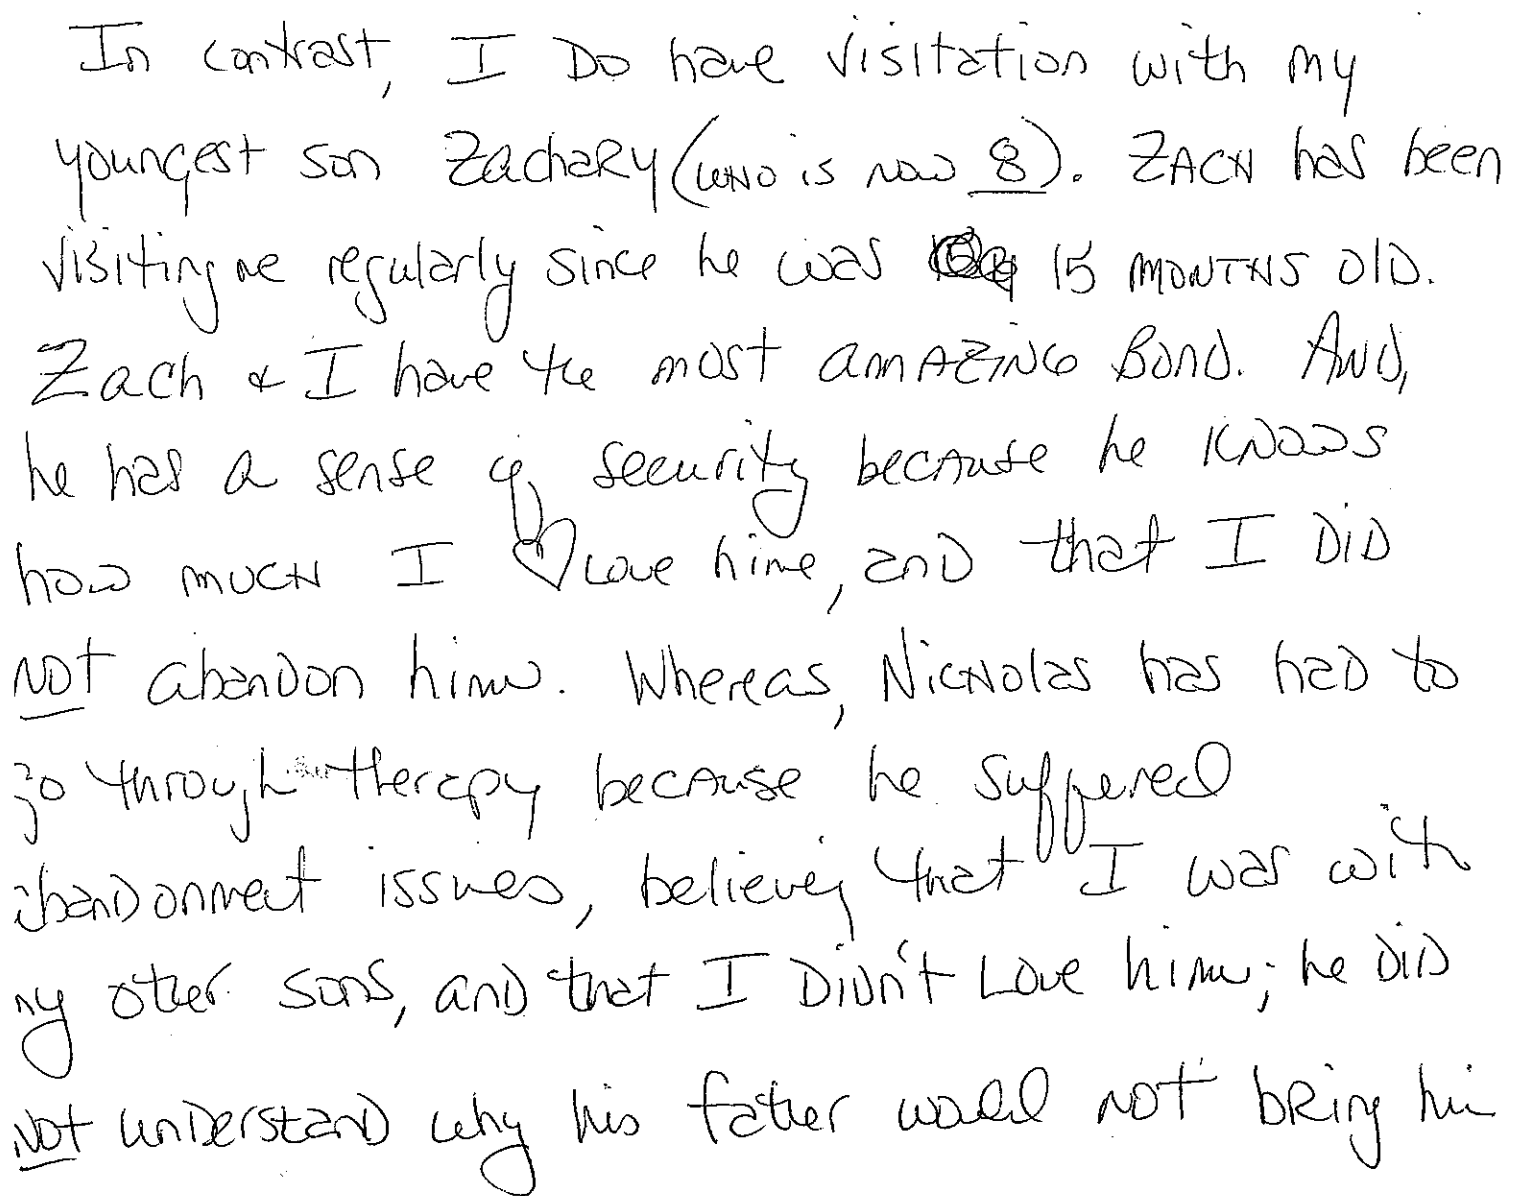 In contrast, I DO have visitation with my
youngest son Zachary (who is now 8). Zach has been
visiting me regularly since he was 15 months old.
Zach & I have the most amazing Bond. And,
he has a sense of security because he knows
how much I ♡ Love him, and that I DID
NOT abandon him. Whereas, Nicholas has had to
go through therapy because he suffered
abandonment issues, believing that I was with
my other sons, and that I Didn't Love him; he DID
NOT understand why his father would not bring him